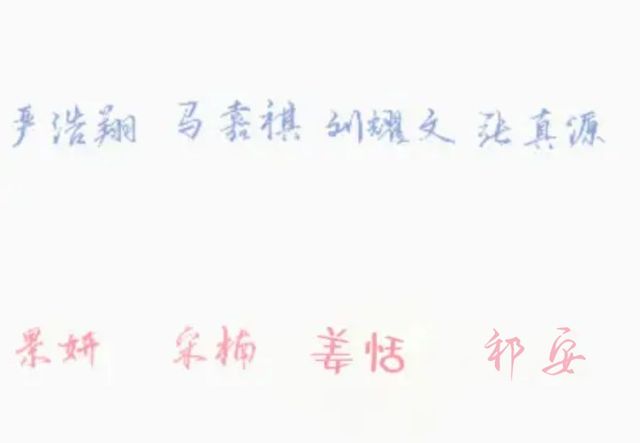 严浩翔 马嘉祺 刘耀文 张真源
景妍 采楠 姜恬 祁安